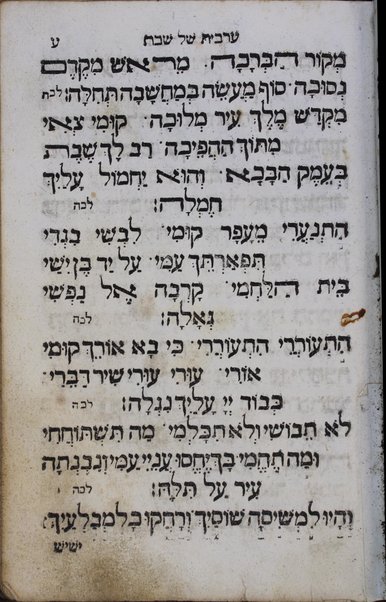 ערבית של שבת ע
מְקוֹר הַבְּרָכָה׃ מֵרֹאשׁ מִקֶּדֶם
נְסוּכָה׃ סוֹף מַעֲשֶׂה בְּמַחֲשָׁבָה תְּחִלָּה׃ לכה
מִקְדַּשׁ מֶלֶךְ עִיר מְלוּכָה׃ קוּמִי צְאִי
מִתּוֹךְ הַהֲפֵיכָה׃ רַב לָךְ שֶׁבֶת
בְּעֵמֶק הַבָּכָא׃ וְהוּא יַחֲמוֹל עָלַיִךְ
חֶמְלָה׃ לכה
הִתְנַעֲרִי מֵעָפָר קוּמִי׃ לִבְשִׁי בִּגְדֵי
תִפְאַרְתֵּךְ עַמִּי׃ עַל יַד בֶּן יִשַׁי
בֵּית הַלַּחְמִי׃ קָרְבָה אֶל נַפְשִׁי
גְאָלָהּ׃ לכה
הִתְעוֹרְרִי הִתְעוֹרְרִי׃ כִּי בָא אוֹרֵךְ קוּמִי
אוֹרִי׃ עוּרִי עוּרִי שִׁיר דַּבֵּרִי׃
כְּבוֹד יְיָ עָלַיִךְ נִגְלָה׃ לכה
לֹא תֵבוֹשִׁי וְלֹא תִכָּלְמִי׃ מַה תִּשְׁתּוֹחֲחִי
וּמַה תֶּהֱמִי בָּךְ יֶחֱסוּ עֲנִיֵּי עַמִּי וְנִבְנְתָה
עִיר עַל תִּלָּהּ׃ לכה
וְהָיוּ לִמְשִׁיסָה שׁוֹסָיִךְ וְרָחֲקוּ כָּל מְבַלְּעָיִךְ׃
ישיש